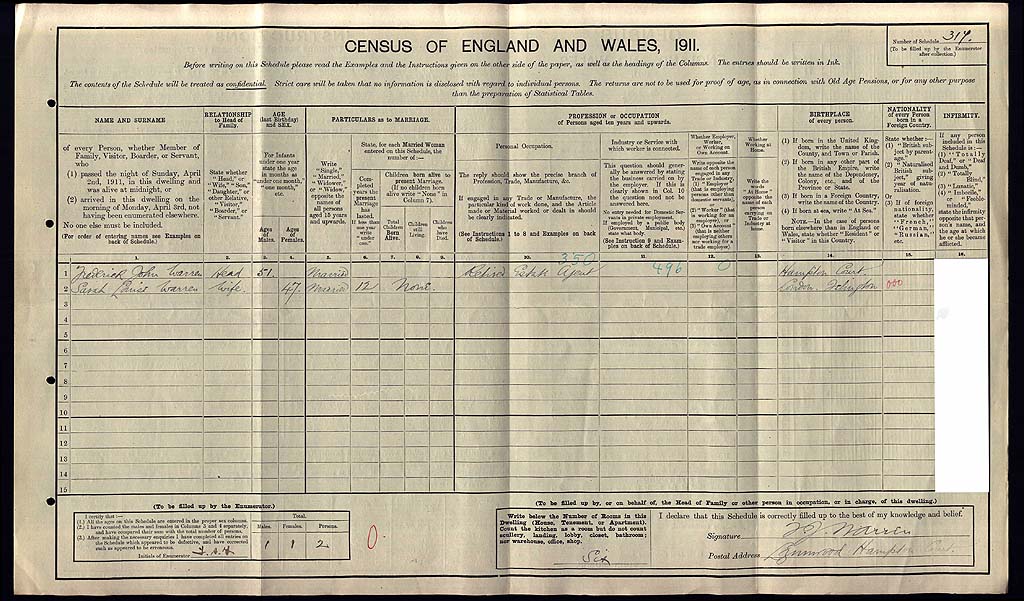 Number of Schedule 317.
(To be filled up by the Enumerator
after collection.)
CENSUS OF ENGLAND AND WALES, 1911.
Before writing on this Schedule please read the Examples and the Instructions given on the other side of the paper, as well as the headings of the Columns. The entries should be written in Ink.
The contents of the Schedule will be treated as confidential. Strict care will be taken that no information is disclosed with regard to individual persons. The returns are not to be used for proof of age, as in connection with Old Age Pensions, or for any other purpose
than the preparation of Statistical Tables.
NAME AND SURNAME
of every Person, whether Member of
Family, Visitor, Boarder, or Servant,
who
(1) passed the night of Sunday, April
2nd, 1911, in this dwelling and
was alive at midnight, or
(2) arrived in this dwelling on the
morning of Monday, April 3rd, not
having been enumerated elsewhere.
No one else must be included.
(For order of entering names see Examples on
back of Schedule.)
RELATIONSHIP
to Head of
Family.
State whether
"Head," or
"Wife," "Son,"
"Daughter," or
other Relative,
"Visitor,"
"Boarder," or
"Servant."
AGE
(last Birthday)
and SEX.
For Infants
under one year
state the age
in months as
"under one month,"
"one month,"
etc.
Ages
of
Males.
Ages
of
Females.
PARTICULARS as to MARRIAGE.
Write
"Single,"
"Married,"
"Widower,"
or "Widow,"
opposite the
names of
all persons
aged 15 years
and upwards.
State, for each Married Woman
entered on this Schedule, the
number of:—
Completed
years the
present
Marriage
has
lasted.
If less than
one year
write
"under
one."
Children born alive to
present Marriage.
(If no children born
alive write "None" in
Column 7).
Total
Children
Born
Alive.
Children
still
Living.
Children
who
have
Died.
PROFESSION or OCCUPATION
of Persons aged ten years and upwards.
Personal Occupation.
The reply should show the precise branch of
Profession, Trade, Manufacture, &c.
If engaged in any Trade or Manufacture, the
particular kind of work done, and the Article
made or Material worked or dealt in should
be clearly indicated.
(See Instructions 1 to 8 and Examples on back
of Schedule.)
Industry or Service with
which worker is connected.
This question should generally
be answered by stating
the business carried on by
the employer. If this is
clearly shown in Col. 10
the question need not be
answered here.
No entry needed for Domestic Servants
in private employment.
If employed by a public body
(Government, Municipal, etc.)
state what body.
(See Instruction 9 and Examples
on back of Schedule.)
Whether Employer,
Worker, or
Working on
Own Account.
Write opposite the
name of each person
engaged in any
Trade or Industry,
(1) "Employer" (that
is employing persons
other than
domestic servants),
or
(2) "Worker" (that
is working for an
employer), or
(3) "Own Account"
(that is neither
employing others
nor working for a
trade employer).
Whether
Working at
Home.
Write the
words
"At Home"
opposite the
name of each
person
carrying on
Trade or
Industry at
home.
BIRTHPLACE
of every person.
(1) If born in the United Kingdom,
write the name of the
County, and Town or Parish.
(2) If born in any other part of
the British Empire, write
the name of the Dependency,
Colony, etc., and of the
Province or State.
(3) If born in a Foreign Country,
write the name of the Country.
(4) If born at sea, write "At Sea."
NOTE.—In the case of persons
born elsewhere than in England or
Wales, state whether "Resident" or
"Visitor" in this Country.
NATIONALITY
of every Person
born in a
Foreign Country.
State whether:—
(1) "British subject
by parentage."
(2) "Naturalised
British subject,"
giving
year of naturalisation.
(3) If of foreign
nationality,
state whether
"French,"
"German,"
"Russian,"
etc.
INFIRMITY.
If any person
included in this
Schedule is:—
(1) "Totally
Deaf," or "Deaf
and Dumb,"
(2) "Totally
Blind,"
(3) "Lunatic,"
(4) "Imbecile,"
or "Feeble-minded,"
state the infirmity
opposite that person's
name, and
the age at which
he or she became
afflicted.
1. 2. 3. 4. 5. 6. 7. 8. 9. 10. 11. 12. 13. 14. 15. 16.
350 496 0
1 Frederick John Warren Head 51. Married Retired Estate Agent Hampton Court
2 Sarah Louise Warren Wife. 47. Married 12 None. London. Islington 000
3
4
5
6
7
8
9
10
11
12
13
14
15
(To be filled up by the Enumerator.)
I certify that:—
(1.) All the ages on this Schedule are entered in the proper sex columns.
(2.) I have counted the males and females in Columns 3 and 4 separately,
and have compared their sum with the total number of persons.
(3.) After making the necessary enquiries I have completed all entries on
the Schedule which appeared to be defective, and have corrected
such as appeared to be erroneous.
Initials of Enumerator
Total.
Males. Females. Persons.
1 1 2
0.
(To be filled up by, or on behalf of, the Head of Family or other person in occupation, or in charge, of this dwelling.)
Write below the Number of Rooms in this
Dwelling (House, Tenement, or Apartment).
Count the kitchen as a room but do not count
scullery, landing, lobby, closet, bathroom;
nor warehouse, office, shop.
Six
I declare that this Schedule is correctly filled up to the best of my knowledge and belief.
Signature F J Warren
Postal Address Hampton